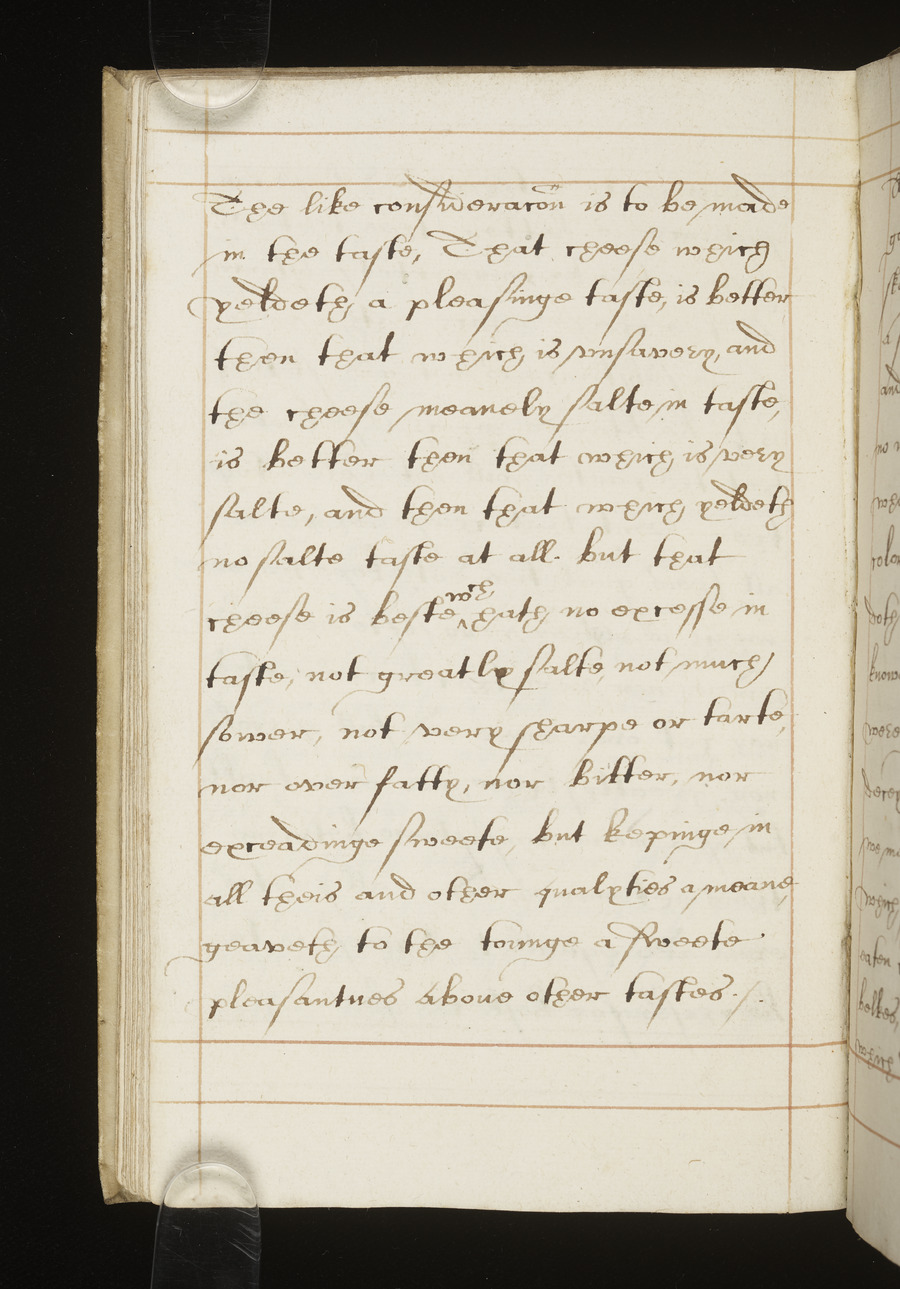 The like consideracõn is to be made
in the taste, That cheese which
yeldeth a pleasinge taste, is better
then that which is vnsavery, and
the cheese meanely salte in taste,
is better then that which is very
salte, and then that which yeldeth
no salte taste at all. but that
cheese is beste ^wch hath no excesse in
taste, not greatly salte, not much
sower, not very sharpe or tarte,
nor over fatty, nor bitter, nor
exceadinge sweete, but kepinge in
all theis and other qualyties a meane,
geaveth to the tounge a sweete
pleasantnes above other tastes ./.